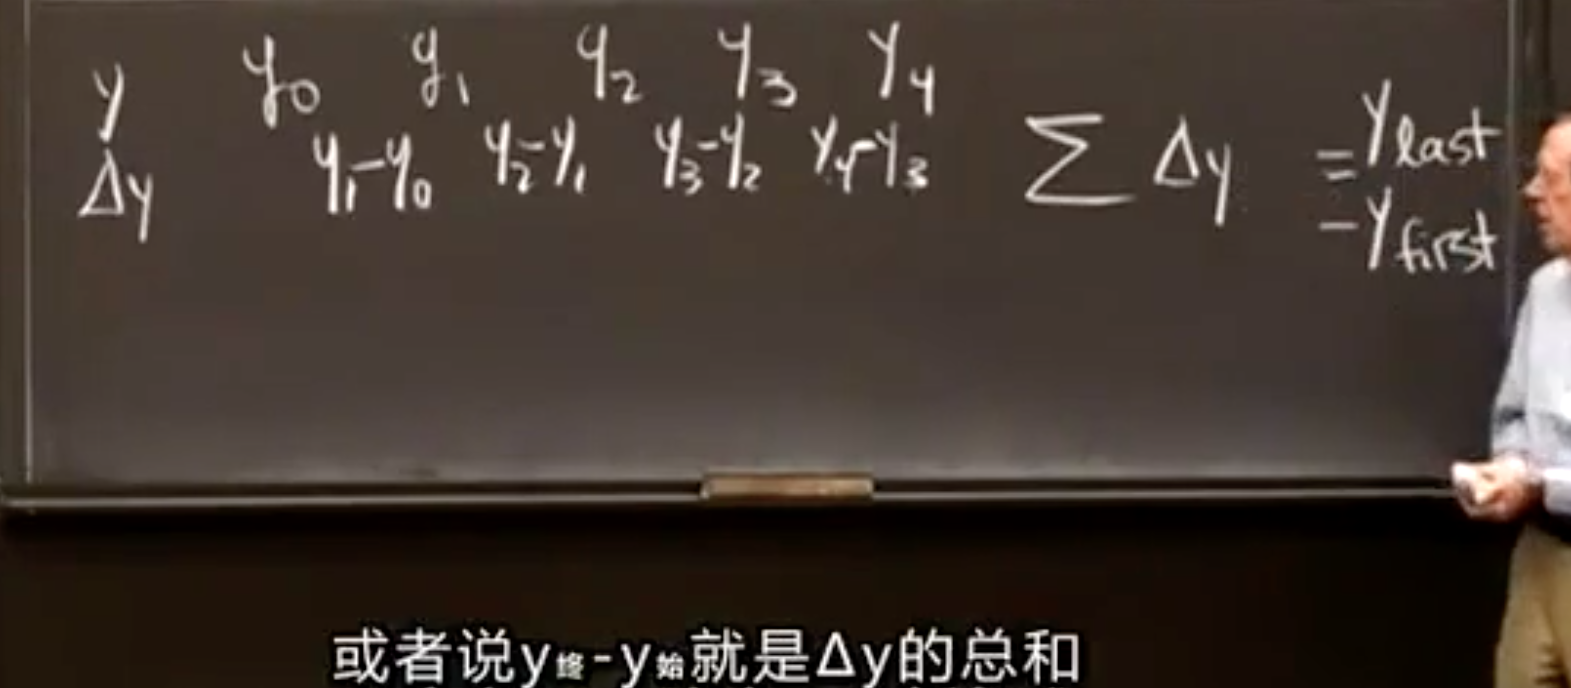 y y₀ y₁ y₂ y₃ y₄
Δy y₁-y₀ y₂-y₁ y₃-y₂ y₄-y₃ Σ Δy = y last
- y first
或者说y终-y始就是Δy的总和